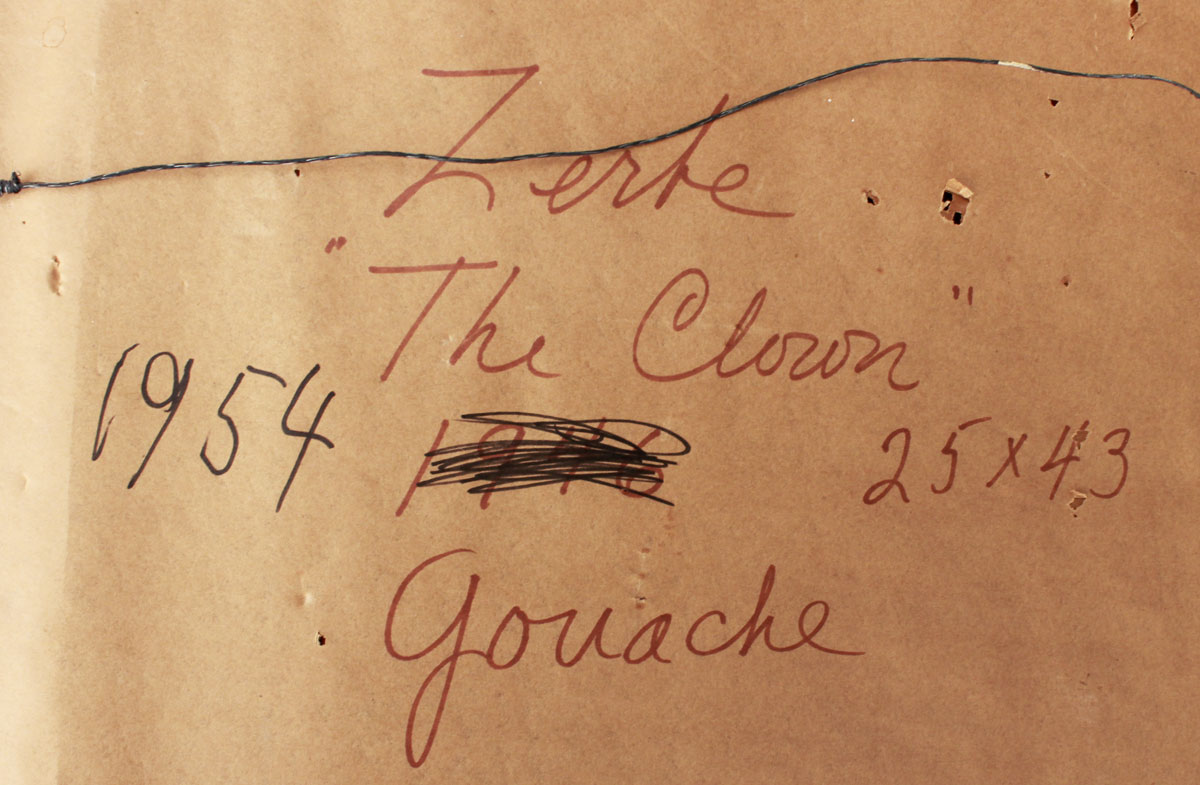 Zerbe
"The Clown"
1954 25x43
Gouache